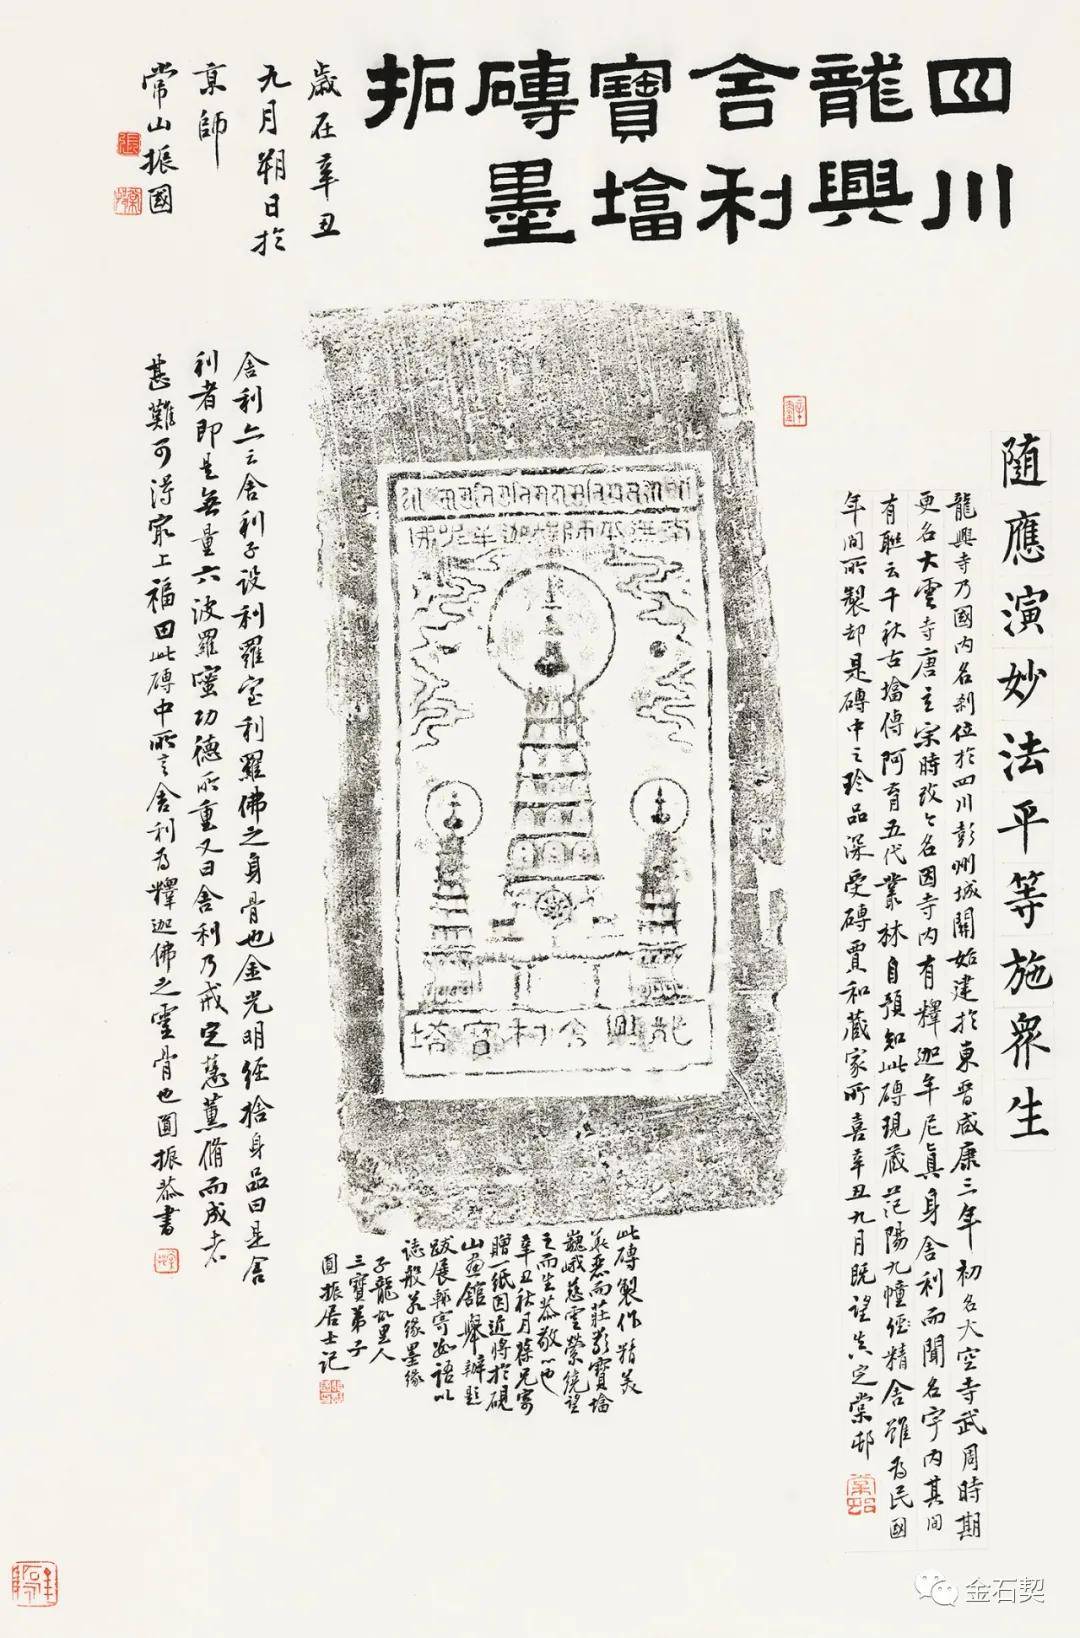 四川
龍興
舍利
寶墖
磚墨
拓
歲在辛丑
九月朔日於
京師
常山振國
隨應演妙法平等施眾生
龍興寺乃國內名刹位於四川彭州城關始建於東晉咸康三年初名大空寺武周時期
更名大雲寺唐玄宗時改今名因寺內有釋迦牟尼真身舍利而聞名宇內其間
有聯云千秋古墖傳阿育五代叢林自預知此磚現藏范陽九幢經精舍雖為民國
年間所製却是磚中之珍品深受磚賈和藏家所喜辛丑九月既望真定棠邨
南無本師釋迦牟尼佛
龍興舍利寶塔
舍利亦云舍利子設利羅室利羅佛之身骨也金光明經捨身品曰是舍
利者即是無量六波羅蜜功德所重又曰舍利乃戒定慧薰脩而成者
甚難可得最上福田此磚中所言舍利為釋迦佛之靈骨也圓振恭書
此磚製作精美
華茂而莊嚴寶墖
巍峨慈雲縈繞望
之而生恭敬心也
辛丑秋月葆兄寄
贈一紙因近將於硯
山畫館舉辦題
跋展輒寄數語以
誌般若緣墨緣
子龍故里人
三寶弟子
圓振居士記
金石契